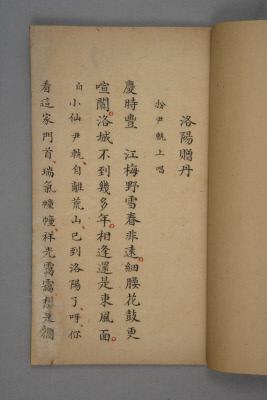 洛陽贈丹
扮尹軌上唱
慶時豐　江梅野雪春非遠細腰花鼓更
喧闐洛城不到幾多年相逢還是東風面
白小仙尹軌自離荒山已到洛陽了呀你
看這家門首瑞氣幢幢祥光靄靄想是個